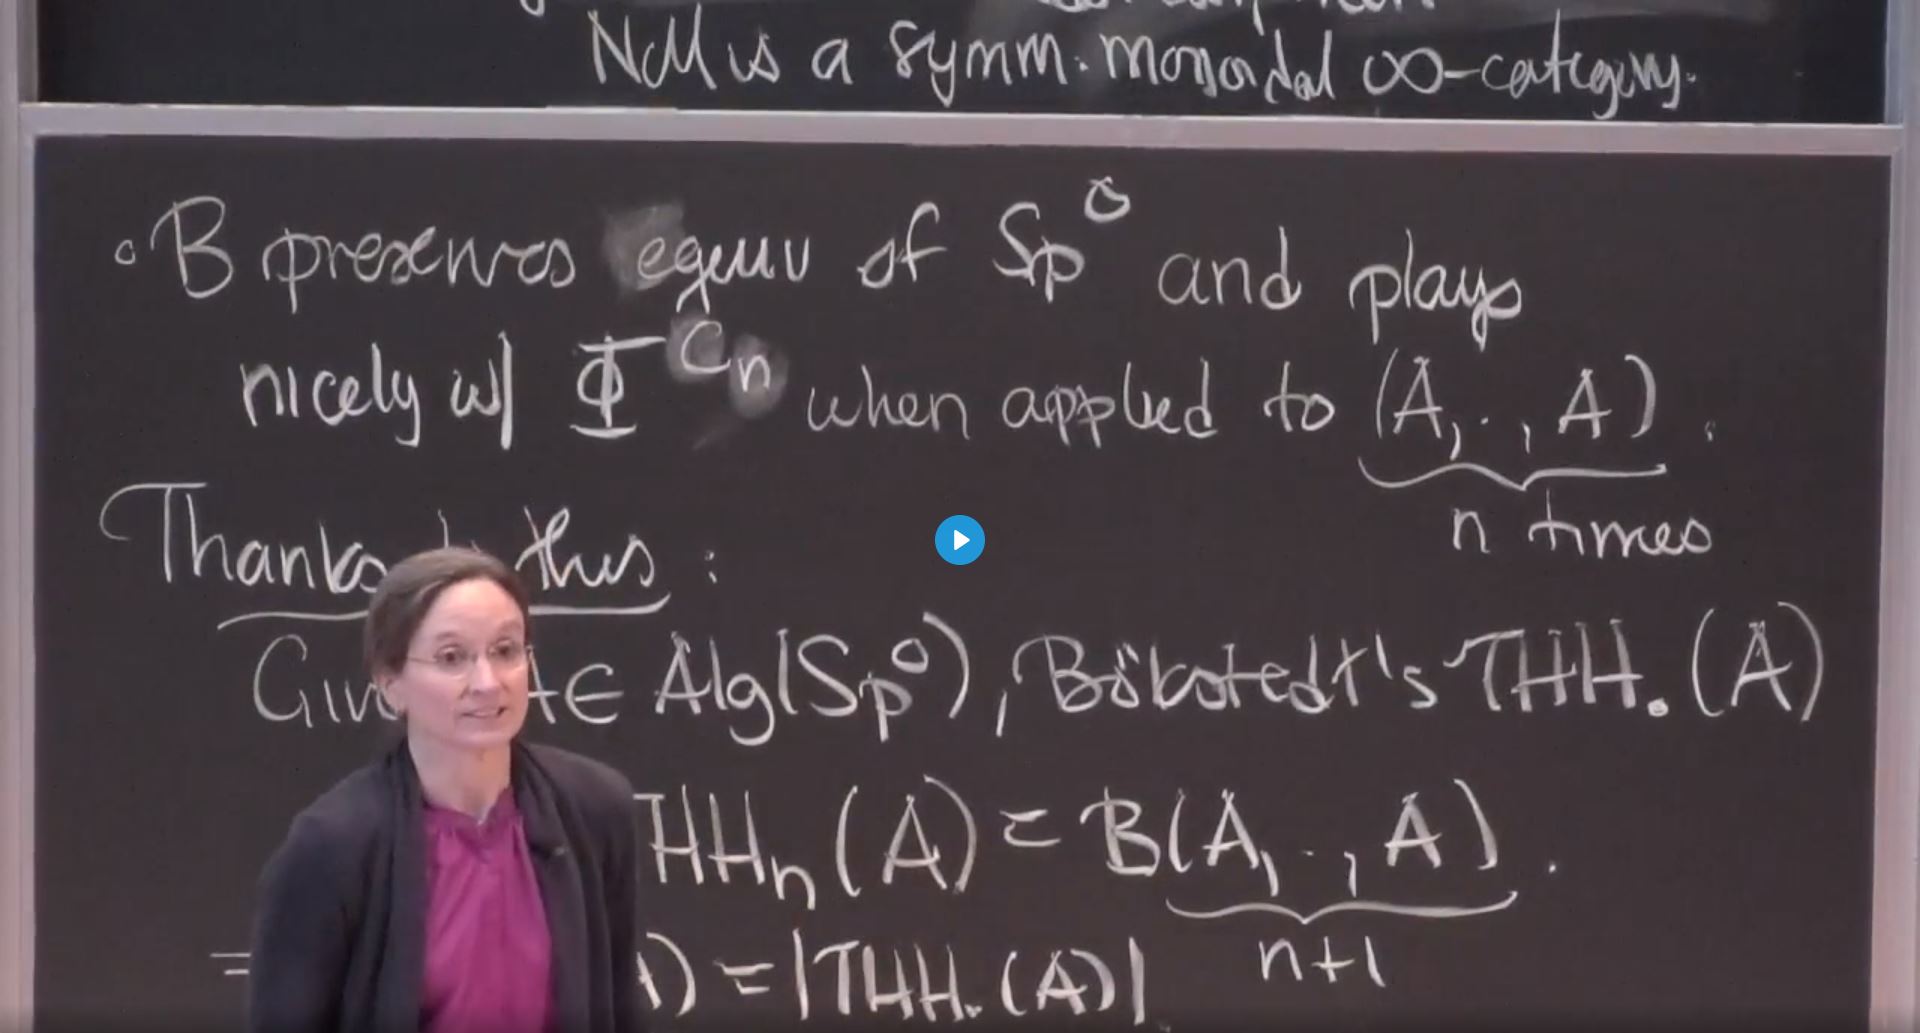 NM is a symm. monoidal ∞-category.
∘ B preserves equiv of Sp^O and plays
nicely w/ Φ^{C_n} when applied to (A, .., A).
n times
Thanks to this :
Given A ∈ Alg(Sp^O), Bökstedt's THH.(A)
THH_n(A) = B(A, .., A).
n+1
= A) = |THH.(A)|